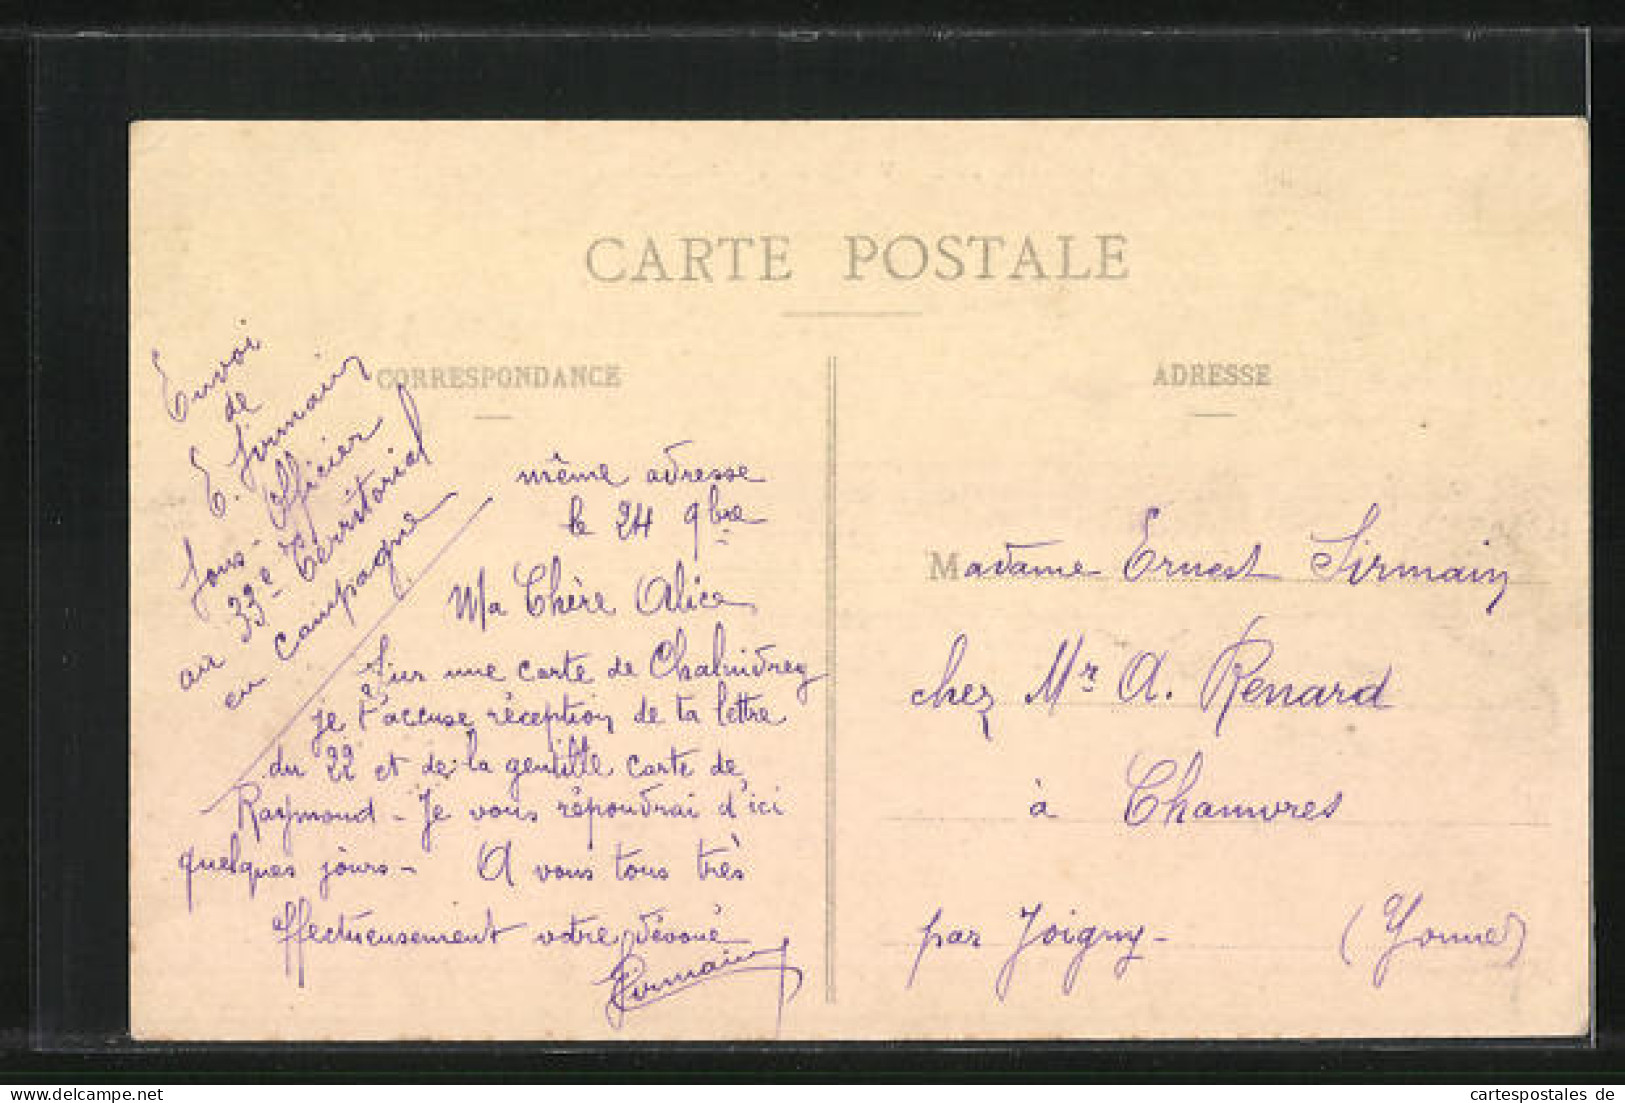 CARTE POSTALE
CORRESPONDANCE
ADRESSE
Envoi
de
E. Sirmain
Sous-Officier
au 33e Territorial
en campagne
même adresse
le 24 9bre
Ma Chère Alice
Sur une carte de Chalindrey
je t'accuse réception de ta lettre
du 22 et de la gentille carte de
Raymond - Je vous répondrai d'ici
quelques jours - A vous tous très
affectueusement votre dévoué
Sirmain
Madame Ernest Sirmain
chez Mr A. Renard
à Chamvres
par Joigny - (Yonne)
cartespostales de